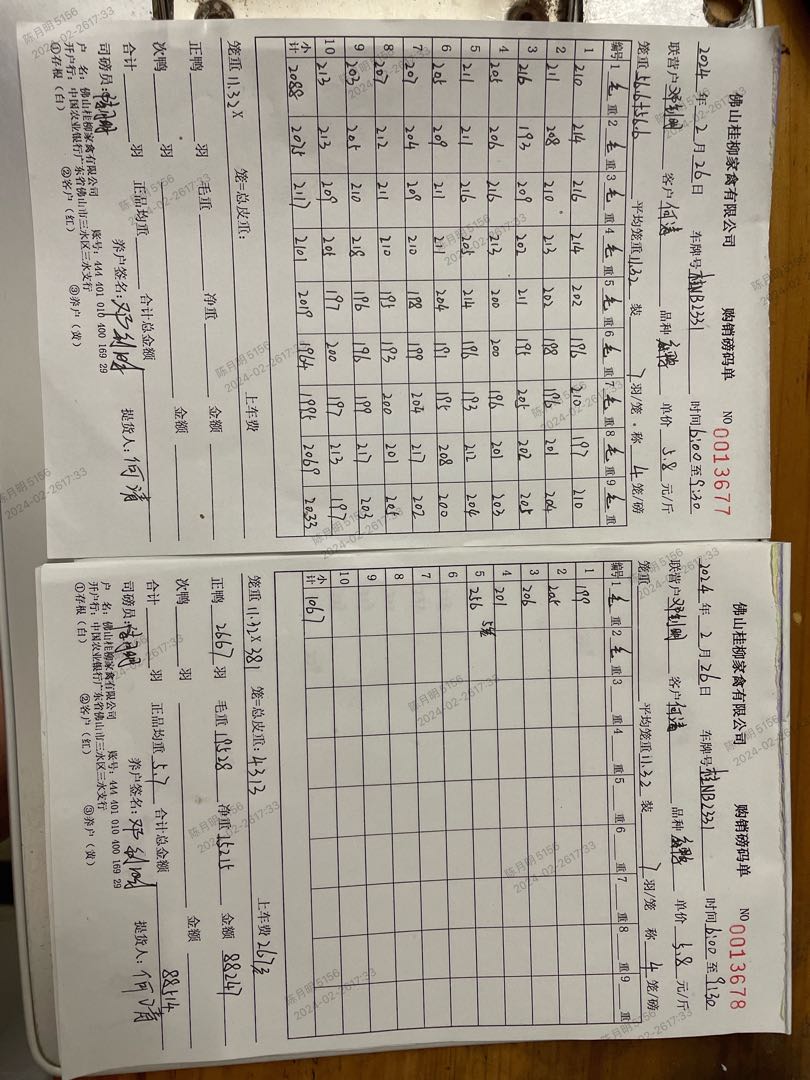 佛山桂柳家禽有限公司 购销磅码单 NO 0013677
2024 年 2 月 26 日 车牌号 桂NB2331 时间 6:00 至 9:30
联营户 邓剑明 客户 何清 品种 单价 5.8 元/斤
笼重 56.6+56.6 平均笼重 11.32 装 7 羽/笼.称 4 笼/磅
编号 1 毛 重 2 毛 重 3 毛 重 4 毛 重 5 毛 重 6 毛 重 7 毛 重 8 毛 重 9 毛 重
1 210 214 216 214 202 196 210 197 210
2 211 208 210 213 202 198 196 201 204
3 216 193 209 202 211 195 205 202 205
4 205 206 216 213 200 200 196 201 203
5 211 211 216 205 214 196 193 212 204
6 205 209 211 211 204 191 195 208 200
7 207 204 209 210 198 199 204 217 202
8 207 212 211 210 195 193 200 201 205
9 203 205 210 218 196 196 199 217 203
10 213 213 209 205 197 200 197 213 197
小计 2088 2075 2117 2101 2019 1964 1995 2069 2033
笼重 11.32 X 笼=总皮重: 上车费
正鸭 羽 毛重 净重 金额
次鸭 羽 金额
合计 羽 正品均重 合计总金额
司磅员: 养户签名: 邓剑明 提货人: 何清
户 名: 佛山桂柳家禽有限公司 账号: 444 401 010 400 169 29
开户行: 中国农业银行广东省佛山市三水区三水支行
①存根(白) ②客户(红) ③养户(黄)
佛山桂柳家禽有限公司 购销磅码单 NO 0013678
2024 年 2 月 26 日 车牌号 桂NB2331 时间 6:00 至 9:30
联营户 邓剑明 客户 何清 品种 单价 5.8 元/斤
笼重 平均笼重 11.32 装 7 羽/笼 称 4 笼/磅
编号 1 毛 重 2 毛 重 3 重 4 重 5 重 6 重 7 重 8 重 9 重
1 199
2 205
3 206
4 201
5 256 5笼
6
7
8
9
10
小计 1067
笼重 11.32 X 381 笼=总皮重: 4313 上车费 267元
正鸭 2667 羽 毛重 19528 净重 15215 金额 88247
次鸭 羽 金额
合计 羽 正品均重 5.7 合计总金额 88514
司磅员: 养户签名: 邓剑明 提货人: 何清
户 名: 佛山桂柳家禽有限公司 账号: 444 401 010 400 169 29
开户行: 中国农业银行广东省佛山市三水区三水支行
①存根(白) ②客户(红) ③养户(黄)
陈月明 5156
2024-02-26 17:33